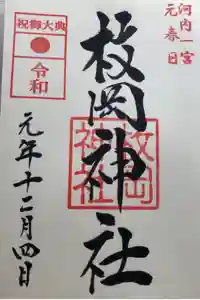 河内一宮
元春日
枚岡神社
枚岡
神社
祝御大典
令和
元年十二月四日